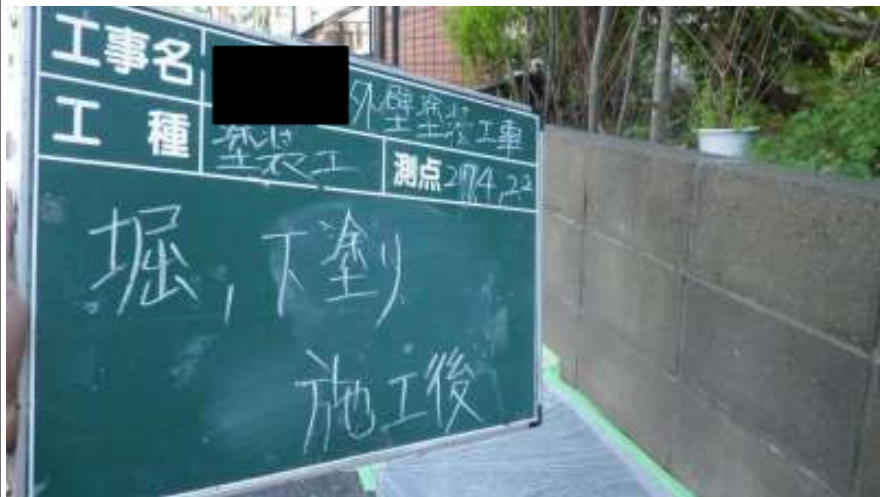 工事名 外壁塗装工事
工種 塗装工 測点 27,4,22
堀,下塗り
施工後